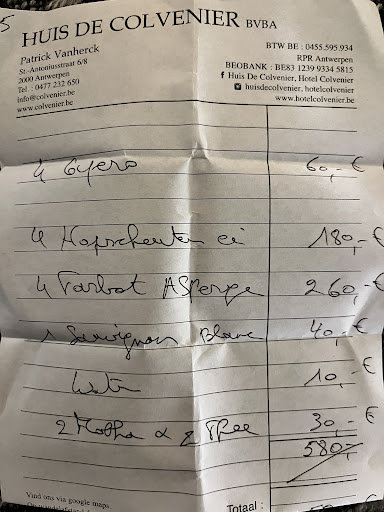 5
HUIS DE COLVENIER BVBA
Patrick Vanherck
St.-Antoniusstraat 6/8
2000 Antwerpen
Tel : 0477 232 650
info@colvenier.be
www.colvenier.be
BTW BE : 0455.595.934
RPR Antwerpen
BEOBANK : BE83 1239 9334 5815
Huis De Colvenier, Hotel Colvenier
huisdecolvenier, hotelcolvenier
www.hotelcolvenier.be
4 60,- €
4 Hopscheuten ei 180,- €
4 Tarbot Asperge 260,- €
1 Sauvignon Blanc 40,- €
Water 10,- €
2 Mokka & 2 Thee 30,- €
580,-
Vind ons via google maps
Totaal :